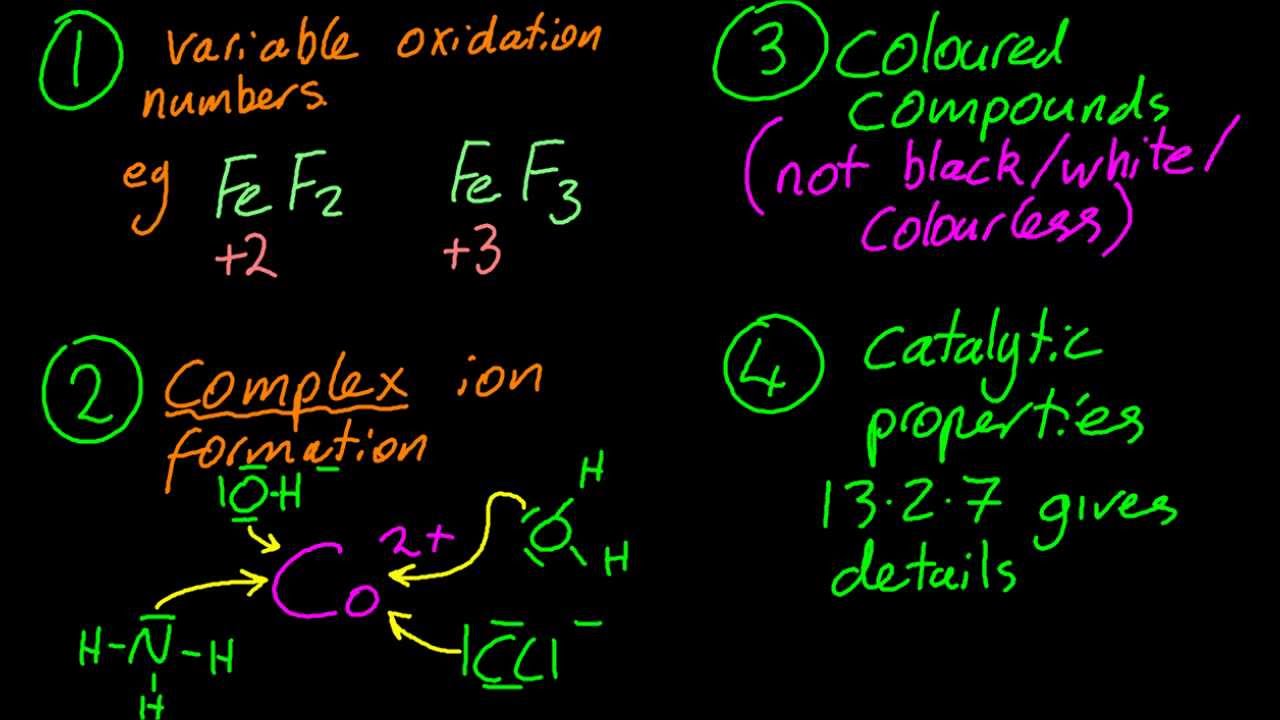 1 variable oxidation
numbers.
eg FeF2 FeF3
+2 +3
2 Complex ion
formation
|O-H −
Co 2+
H
O
H
H-N-H
H
|Cl −
3 Coloured
compounds
(not black/white/
colourless)
4 Catalytic
properties
13.2.7 gives
details